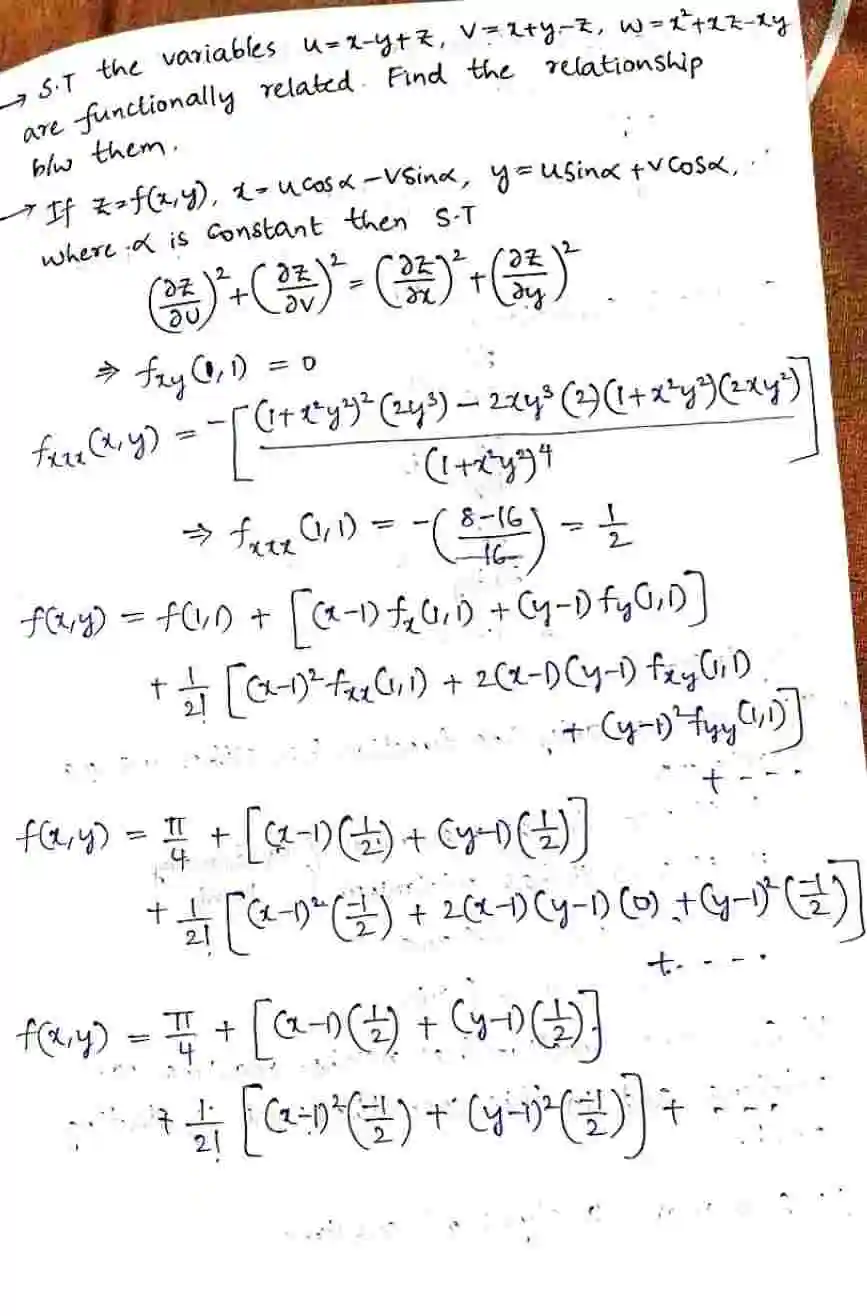 → S.T the variables u=x-y+z, v=x+y-z, w=x²+xz-xy
are functionally related. Find the relationship
b/w them.
→ If z=f(x,y), x=ucosα-vsinα, y=usinα+vcosα,
where α is constant then S.T
(∂z/∂u)²+(∂z/∂v)²=(∂z/∂x)²+(∂z/∂y)²
⇒ fxy(1,1) = 0
fxxx(x,y) = -[((1+x²y²)²(2y³) - 2xy³(2)(1+x²y²)(2xy²))/(1+x²y²)⁴]
⇒ fxxx(1,1) = -((8-16)/16) = 1/2
f(x,y) = f(1,1) + [(x-1)fx(1,1) + (y-1)fy(1,1)]
+ 1/2! [(x-1)²fxx(1,1) + 2(x-1)(y-1)fxy(1,1)
+ (y-1)²fyy(1,1)]
+ ---
f(x,y) = π/4 + [(x-1)(1/2) + (y-1)(1/2)]
+ 1/2! [(x-1)²(-1/2) + 2(x-1)(y-1)(0) + (y-1)²(-1/2)]
+ ----
f(x,y) = π/4 + [(x-1)(1/2) + (y-1)(1/2)]
+ 1/2! [(x-1)²(-1/2) + (y-1)²(-1/2)] + ----